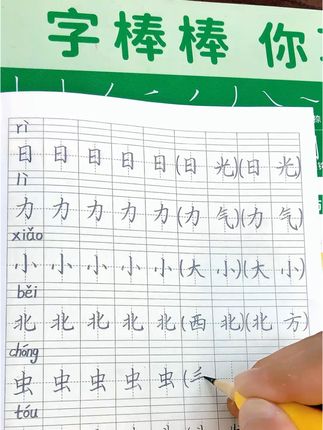 字棒棒 你
rì
日 日 日 日 日 (日 光)(日 光)
lì
力 力 力 力 力 (力 气)(力 气)
xiǎo
小 小 小 小 小 (大 小)(大 小)
běi
北 北 北 北 北 (西 北)(北 方)
chóng
虫 虫 虫 虫 虫 (
tóu